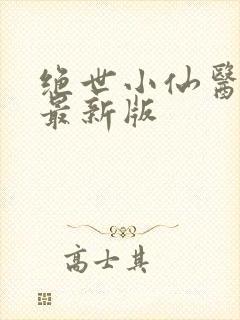 绝世小仙醫
最新版
高士其